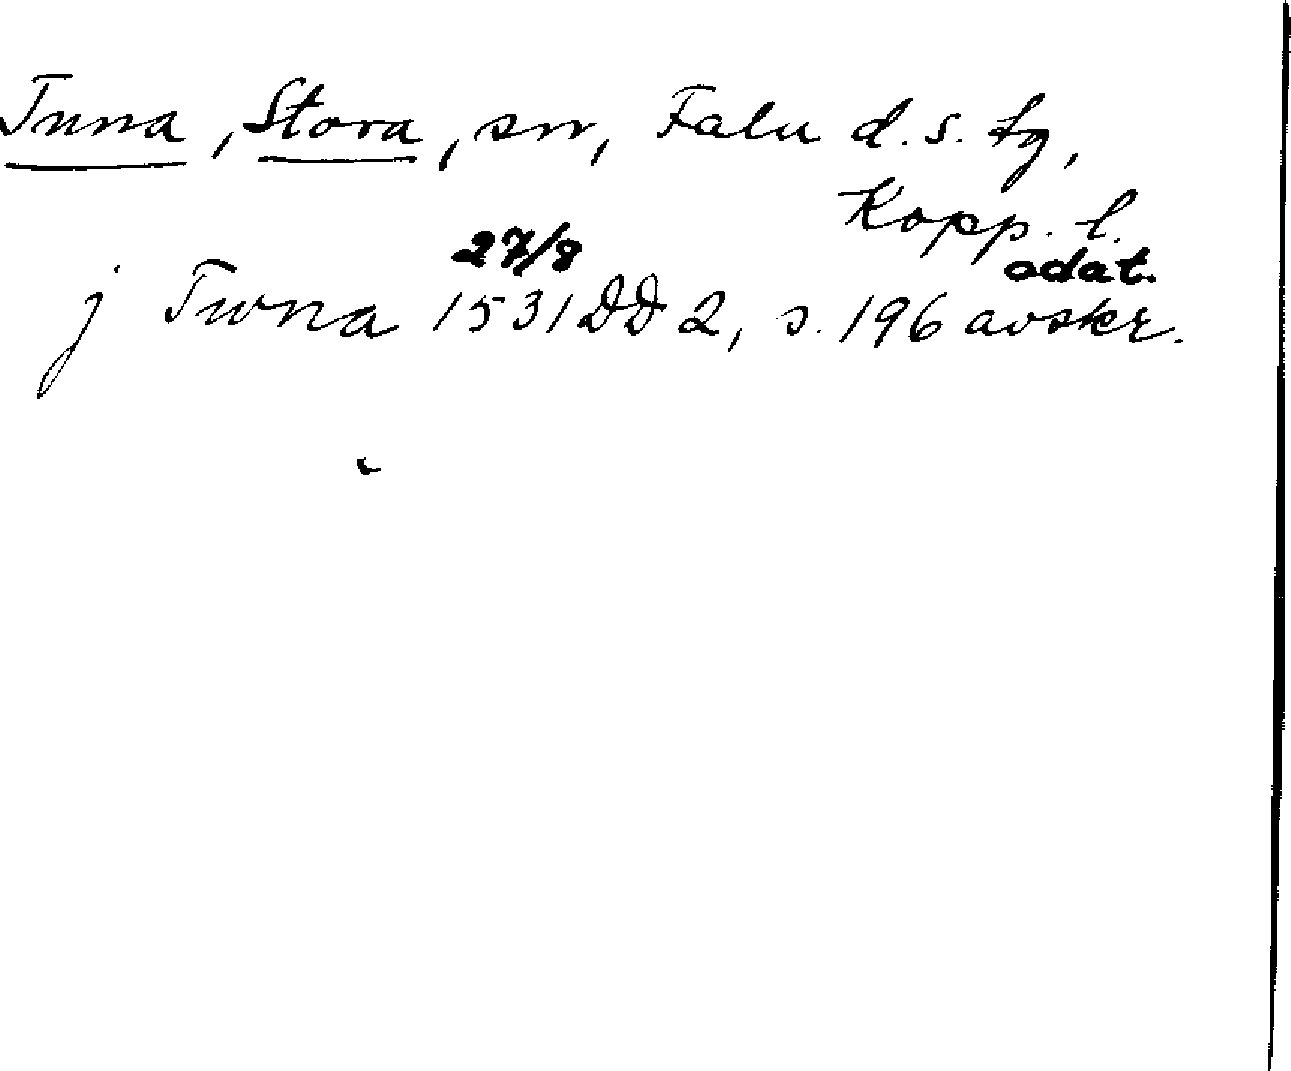 Tuna, Stora, sn, Falu d. s. tg,
Kopp. l.
27/8 odat.
j Twna 1531 DD 2, s. 196 avskr.